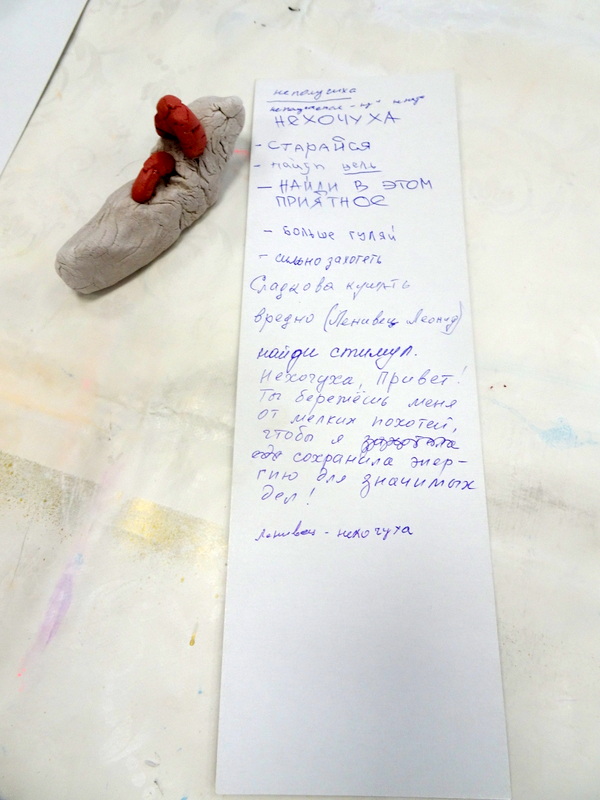 непопучиха
НЕХОЧУХА
- СТАРАЙСЯ
- найди цель
- НАЙДИ В ЭТОМ
ПРИЯТНОЕ
- больше гуляй
- сильно захотеть
Сладкова кушать
вредно (Ленивец Леонид)
найди стимул.
Нехочуха, Привет!
Ты бережёшь меня
от мелких похотей,
чтобы я захотела
сохранила энер-
гию для значимых
дел!
Ленивец - нехочуха